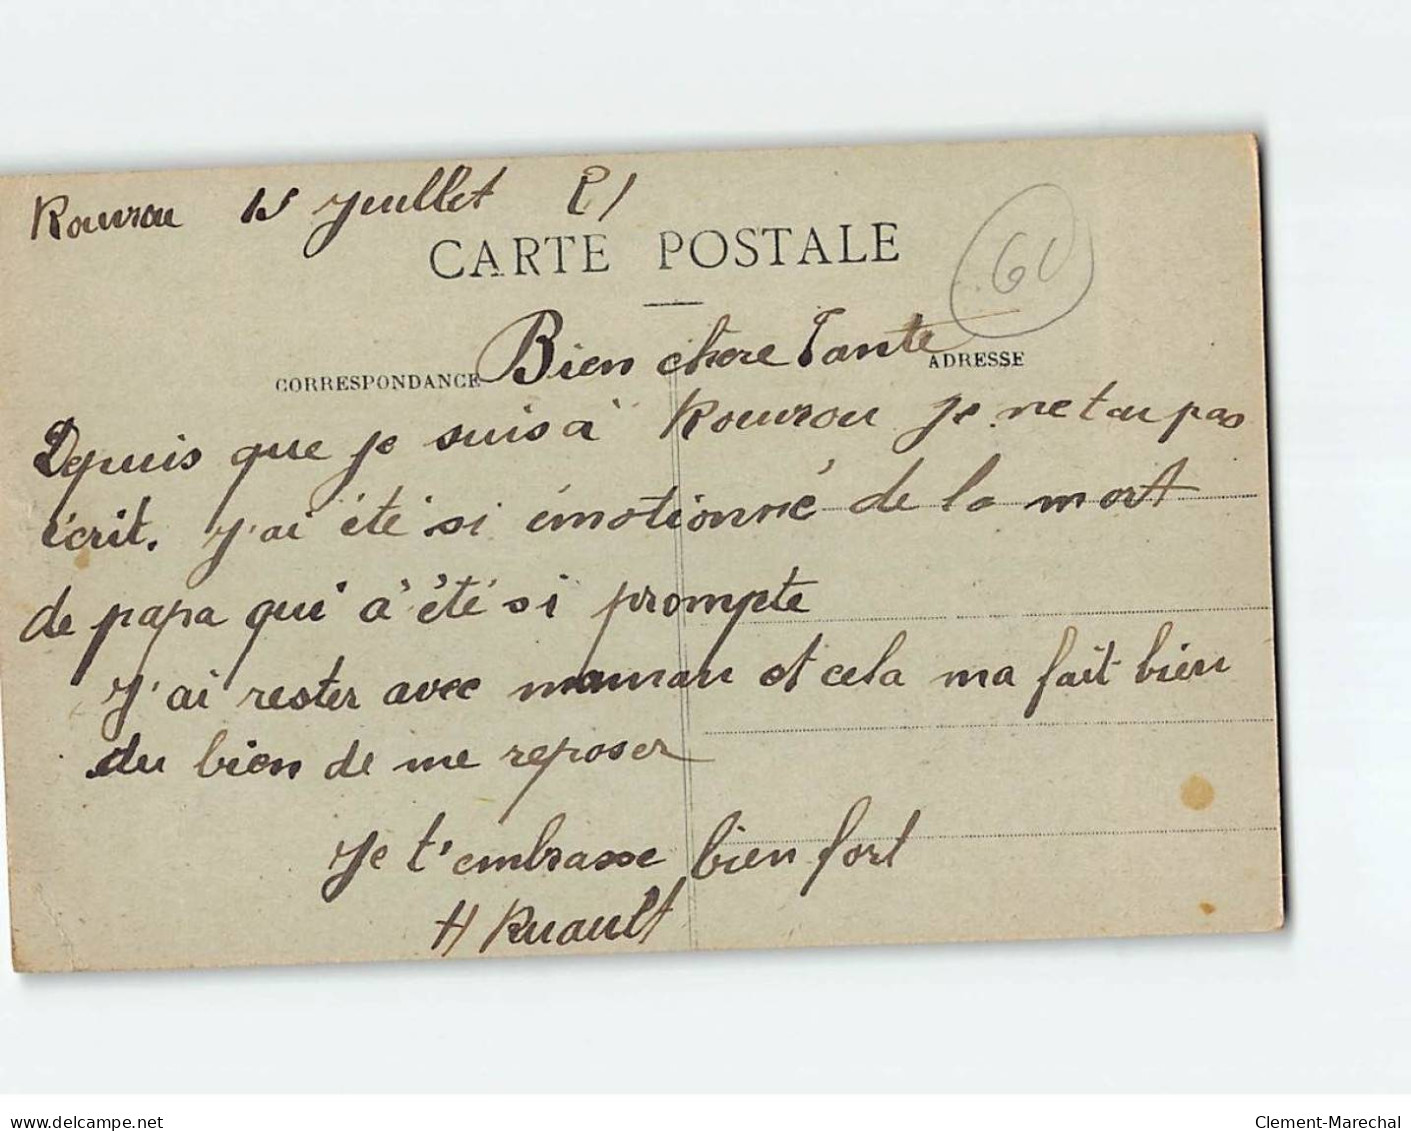 Rouvrou 15 Juillet 21
CARTE POSTALE
60
Bien chere Tante
CORRESPONDANCE
ADRESSE
Depuis que je suis à Rouvrou je ne tai pas
écrit. J'ai été si émotionné de la mort
de papa qui à été si prompte
J'ai rester avec maman et cela ma fait bien
du bien de me reposer
Je t'embrasse bien fort
H Ruault
www.delcampe.net
Clement-Marechal